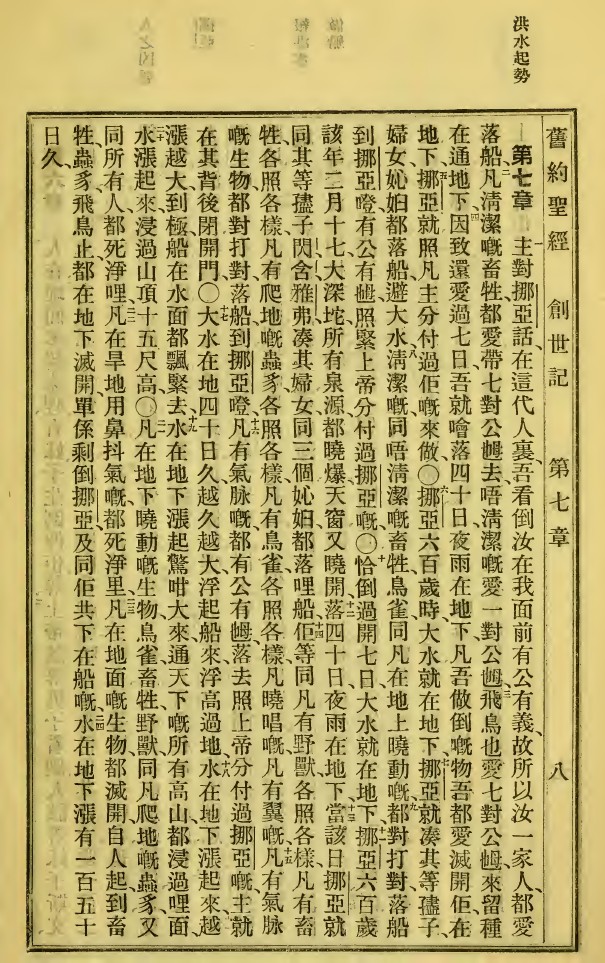 洪水起勢
舊約聖經 創世記 第七章 八
第七章 一主對挪亞話、在這代人裏、吾看倒汝在我面前有公有義、故所以汝一家人、都愛
落船、二凡清潔嘅畜牲、都愛帶七對公𡜵去、唔清潔嘅愛一對公𡜵、三飛鳥也愛七對公𡜵、來留種
在通地下、四因致還愛過七日、吾就噲落四十日夜雨在地下、凡吾做倒嘅物、吾都愛滅開佢在
地下、五挪亞就照凡主分付過佢嘅來做〇六挪亞六百歲時、大水就在地下、七挪亞就凑其等孻子、
婦女、心臼都落船避大水、八清潔嘅同唔清潔嘅畜牲、鳥雀、同凡在地上曉動嘅、九都對打對落船
到挪亞嶝、有公有𡜵、照緊上帝分付過挪亞嘅〇十恰倒過開七日、大水就在地下、十一挪亞六百歲
該年、二月十七、大深坨所有泉源都曉爆、天窗又曉開、十二落四十日夜雨在地下、十三當該日挪亞就
同其等孻子閃、含、雅弗、凑其婦女、同三個心臼、都落哩船、十四佢等同凡有野獸各照各樣、凡有畜
牲各照各樣、凡有爬地嘅蟲豸各照各樣、凡有鳥雀各照各樣、凡曉唱嘅、凡有翼嘅、十五凡有氣脉
嘅生物、都對打對落船到挪亞嶝、十六凡有氣脉嘅都有公有𡜵落去、照上帝分付過挪亞嘅、主就
在其背後閉開門〇十七大水在地四十日久、越久越大、浮起船來、浮高過地、十八水在地下漲起來、越
漲越大到極、船在水面都飄緊去、十九水在地下漲起驚咁大來、通天下嘅所有高山都浸過哩面、
二十水漲起來、浸過山頂十五尺高〇二一凡在地下曉動嘅生物、鳥雀、畜牲、野獸、同凡爬地嘅蟲豸、又
同所有人、都死淨哩、二二凡在旱地用鼻抖氣嘅、都死淨里、二三凡在地面嘅生物都滅開、自人起到畜
牲、蟲豸、飛鳥止、都在地下滅開、單係剩倒挪亞、及同佢共下在船嘅、二四水在地下漲有一百五十
日久、